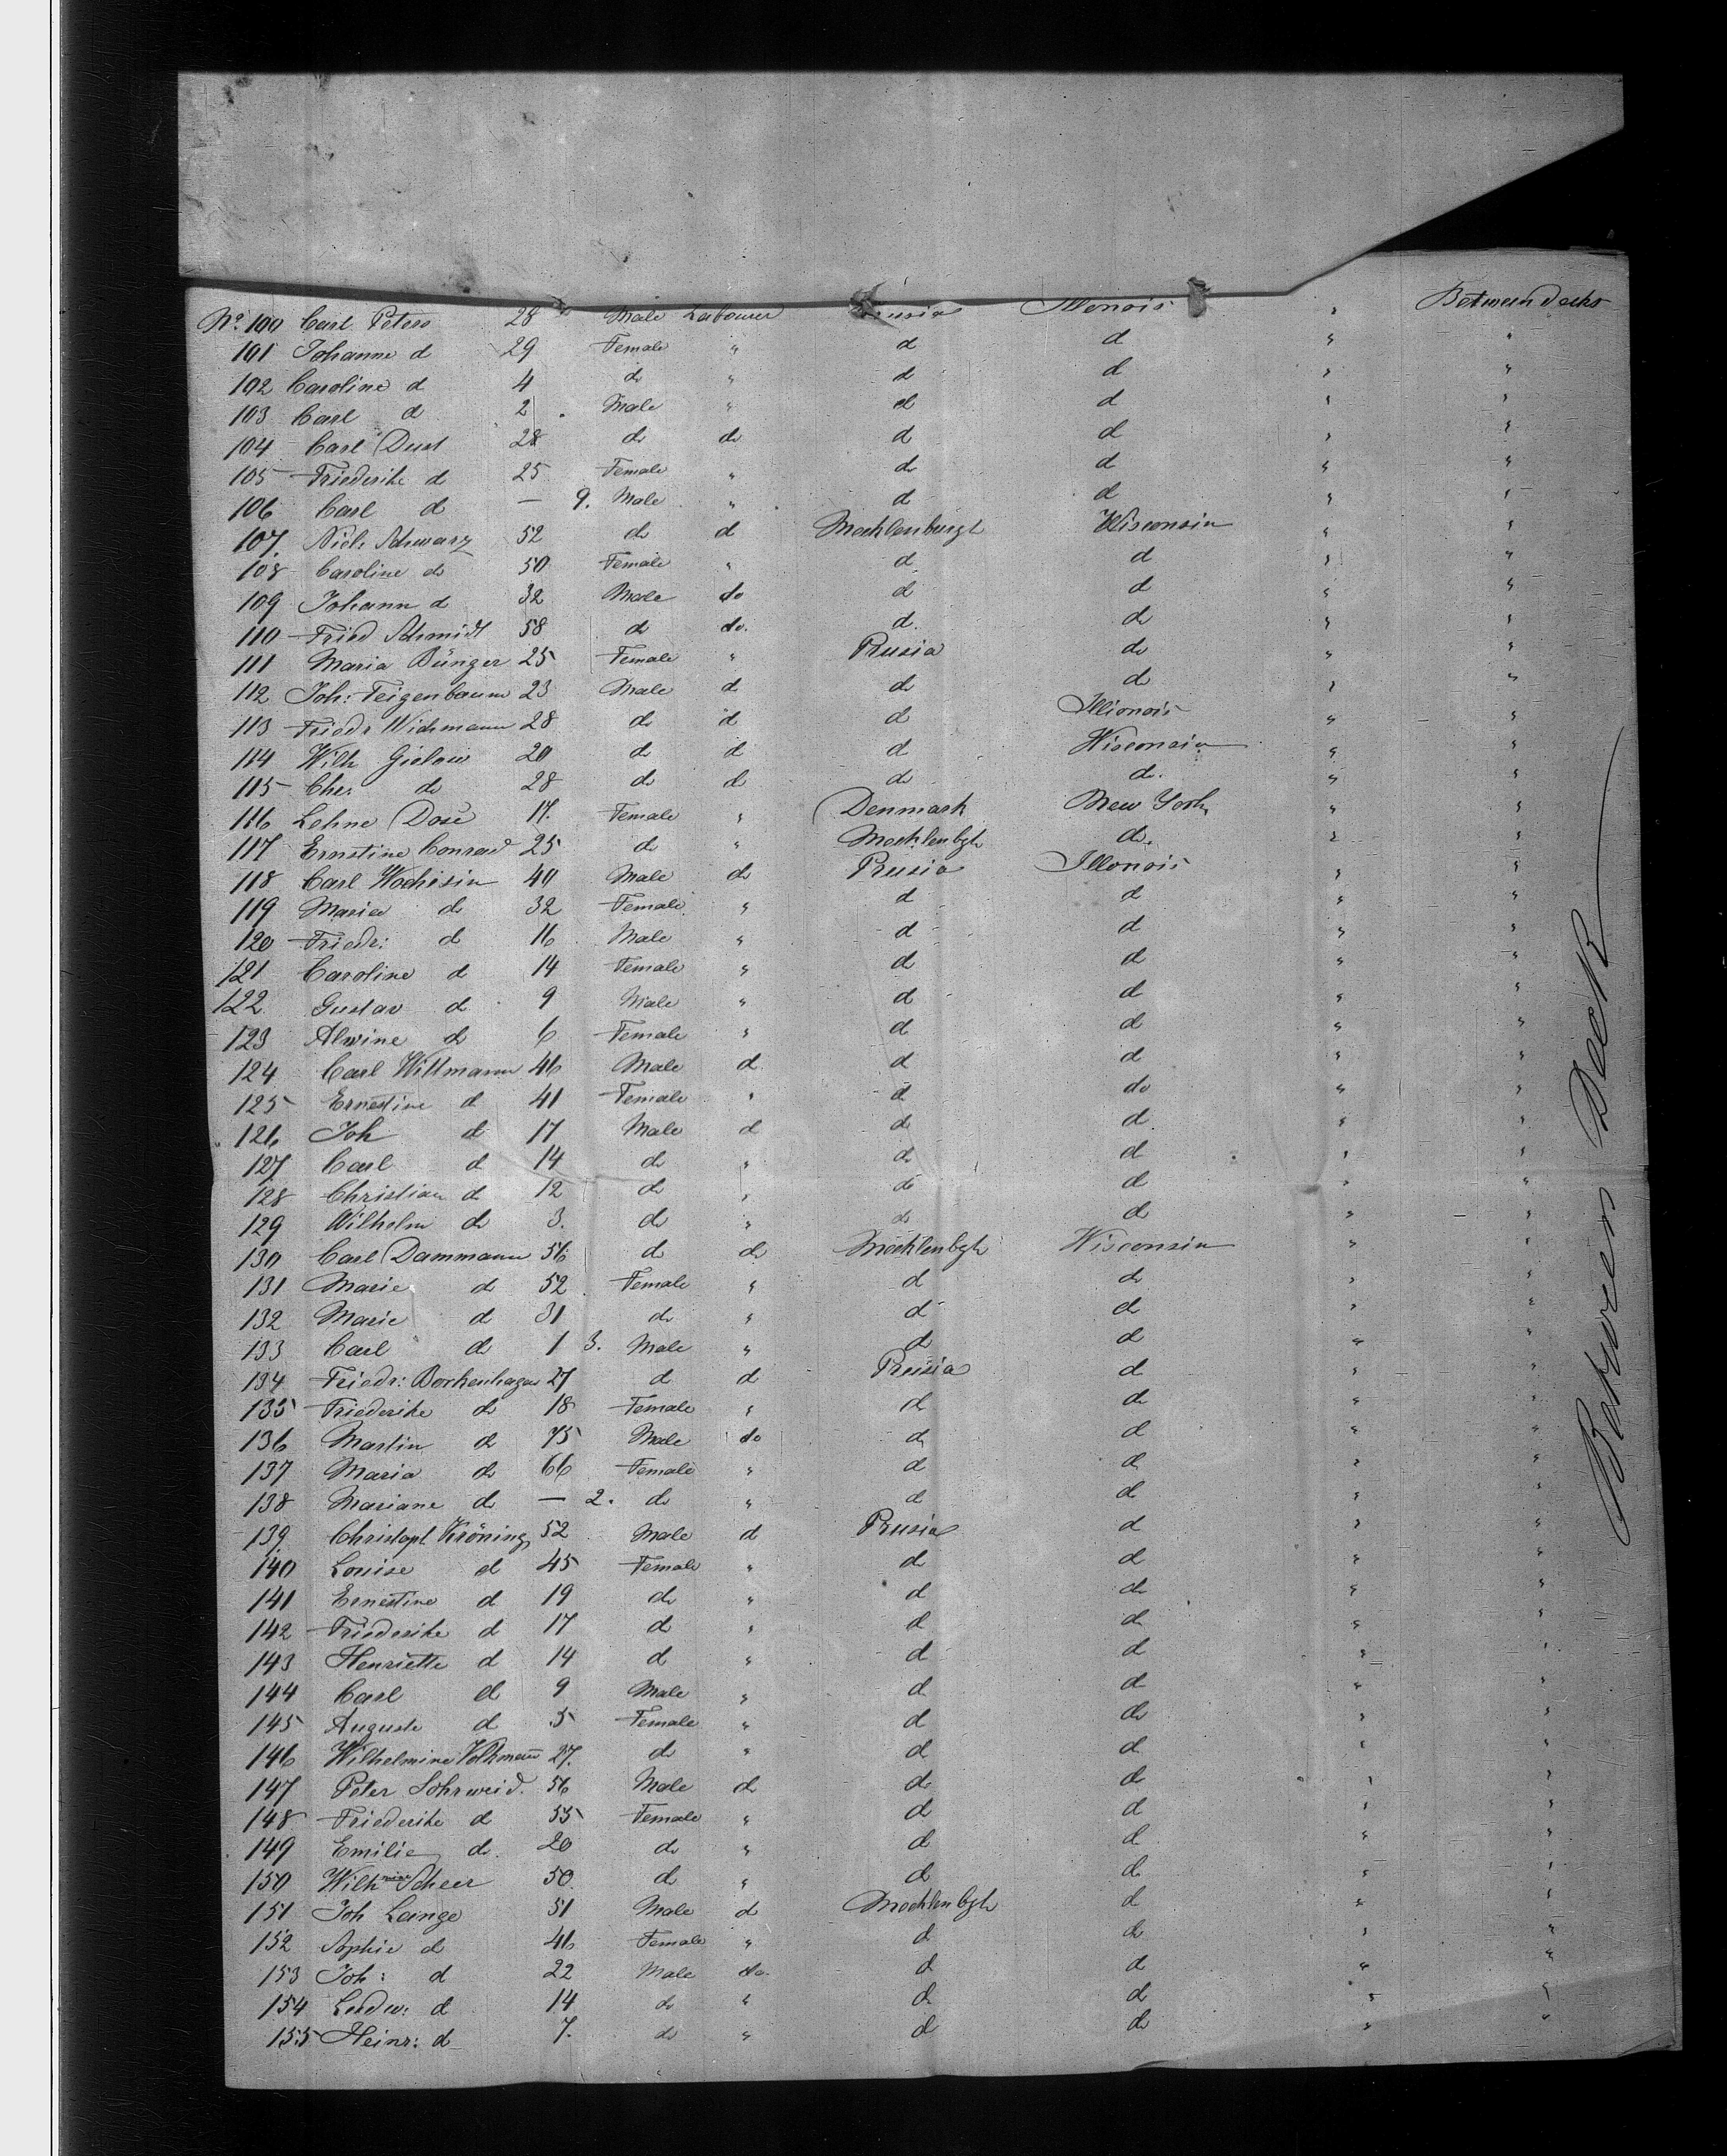 No. 100 Carl Peters 28 Male Labourer Prusia Illenois " Between decks
101 Johanne d 29 Female " d d " "
102 Caroline d 4 do " d d " "
103 Carl d 2 Male " d d " "
104 Carl Dust 28 do do d d " "
105 Friederike d 25 Female " do d " "
106 Carl d — 9. Male " d d " "
107. Nich Schwarz 52 do d Mecklenburgh Wisconsin " "
108 Caroline do 50 Female " d d " "
109 Johann d 32 Male do d d " "
110 Fried Schmidt 58 d do. d. do " "
111 Maria Bünger 25 Female " Prusia do " "
112 Joh: Feigenbaum 23 Male d do do " "
113 Friedr Wichmann 28 do d d Illionois " "
114 Wilh Gielow 20 do d d Wisconsin " "
115 Chr. do 28 do do do do. " "
116 Lehne Dose 17. Female " Denmark New York " "
117 Ernstine Conrad 25 do " Mecklenbgh do. " "
118 Carl 40 Male do Prusia Illonois " "
119 Maria do 32 Female " d d " "
120 Friedr: d 16 Male " d d " "
121 Caroline d 14 Female " d d " "
122 Gustav d 9 Male " d d " "
123 Alwine do 6 Female " d d " "
124 Carl Wittmann 46 Male d d d " "
125 Ernestine d 41 Female " d do " "
126 Joh d 17 Male d do d. " "
127 Carl d 14 do " do d " "
128 Christian d 12 do " do d " "
129 Wilhelm do 3. do " do do " "
130 Carl Dammann 56 d do Mecklenbgh Wisconsin " "
131 Marie d 52 Female " d do " "
132 Marie d 31 do " d do " "
133 Carl do 1 3. Male " d d " "
134 Friedr: Borkenhagen 27 d d Prusia d " "
135 Friederike do 18 Female " d do " "
136 Martin do 75 Male do do d " "
137 Maria do 66 Female " d do " "
138 Mariane do — 2. do " d d " "
139 Christoph Kröning 52 Male d Prusia d " "
140 Louise d 45 Female " do d " "
141 Ernestine d 19 do " d do " "
142 Friederike d 17 d " d do " "
143 Henriette d 14 d " d d " "
144 Carl d 9 Male " d d " "
145 Auguste d 5 Female " d do " "
146 Wilhelmine Volkmann 27. do " d d " "
147 Peter Sohrweid. 56 Male do do do " "
148 Friederike d 55 Female " do d " "
149 Emilie do. 20 do " do d " "
150 Wilhmine Scheer 50. d " do do " "
151 Joh Lange 51 Male d Mecklenbgh d " "
152 Sophie d 46 Female " d do " "
153 Joh: d 22 Male do. d d " "
154 Ludw: d 14 do " do d " "
155 Heinr: d 7. do " d do " "
Between Deck